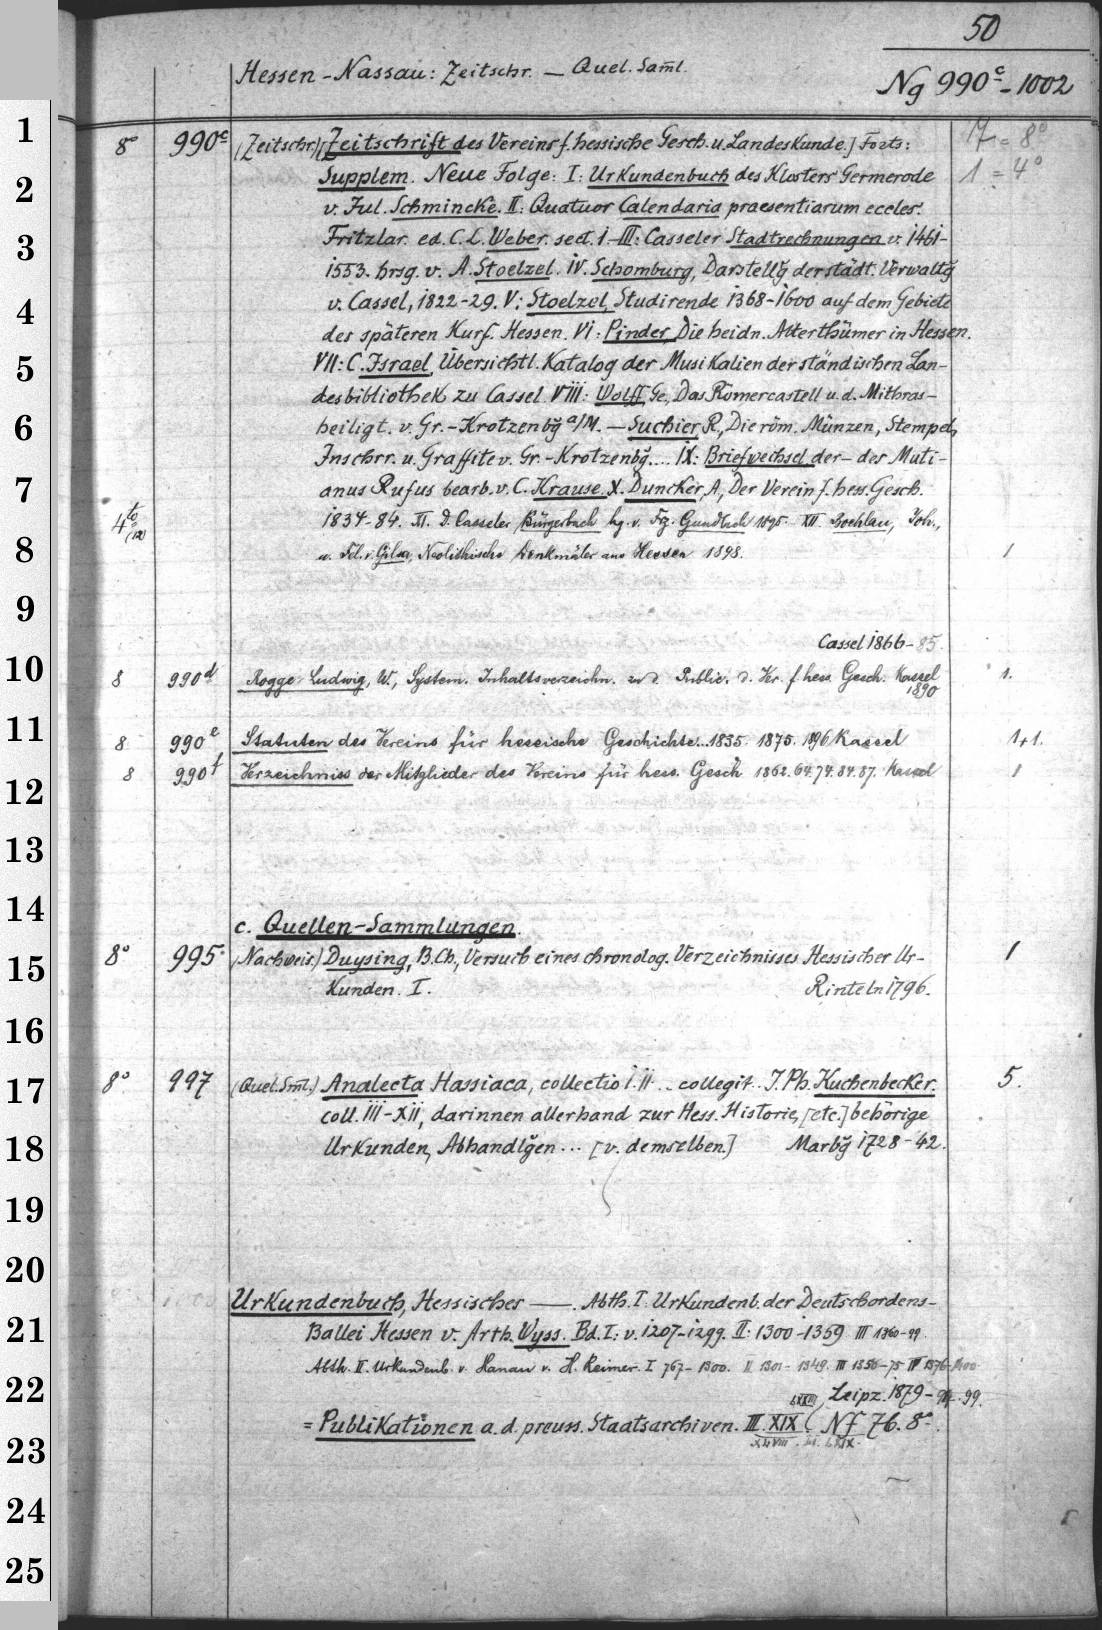 50
Hessen-Nassau: Zeitschr. — Quel. Saml.
Ng 990c-1002
8° 990c (Zeitschr.) [Zeitschrift des Vereins f. hessische Gesch. u. Landeskunde.] Forts: 17 = 8°
Supplem. Neue Folge: I: Urkundenbuch des Klosters Germerode 1 = 4°
v. Jul. Schmincke. II: Quatuor Calendaria praesentiarum eccles.
Fritzlar. ed. C. L. Weber. sect. I-III: Casseler Stadtrechnungen v. 1461-
1553. hrsg. v. A. Stoelzel. IV. Schomburg, Darstellg̃ der städt. Verwaltg̃
v. Cassel, 1822-29. V: Stoelzel, Studirende 1368-1600 auf dem Gebiete
des späteren Kurf. Hessen. VI: Pinder, Die heidn. Alterthümer in Hessen.
VII: C. Israel, Übersichtl. Katalog der Musikalien der ständischen Lan-
desbibliothek zu Cassel. VIII: Wolff, Ge., Das Römercastell u. d. Mithras-
heiligt. v. Gr.-Krotzenbg̃ a/M. — Suchier R., Die röm. Münzen, Stempel,
Inschrr. u. Graffite v. Gr.-Krotzenbg̃.... IX: Briefwechsel der - des Muti-
anus Rufus bearb. v. C. Krause. X. Duncker, A, Der Verein f. hess. Gesch.
4to (XII) 1834-84. XI. D. Casseler Bürgerbuch hg. v. Frz. Gundlach 1895. XII Boehlau, Joh.,
u. Fel. v. Gilsa, Neolithische Denkmäler aus Hessen 1898. 1
Cassel 1866-85.
8 990d Rogge-Ludwig, W., System. Inhaltsverzeichn. zu d. Public. d. Ver. f. hess. Gesch. Kassel 1.
1890
8 990e Statuten des Vereins für hessische Geschichte... 1835. 1875. 1896 Kassel 1+1.
8 990f Verzeichniss der Mitglieder des Vereins für hess. Gesch 1862. 64. 74. 84. 87. Kassel 1
c. Quellen-Sammlungen.
8° 995. (Nachweis.) Duysing, B. Ch., Versuch eines chronolog. Verzeichnisses Hessischer Ur- 1
kunden. I. Rinteln 1796.
8° 997 (Quel. Sml.) Analecta Hassiaca, collectio I. II... collegit. J. Ph. Kuchenbecker. 5.
coll. III-XII, darinnen allerhand zur Hess. Historie, [etc.] behörige
Urkunden, Abhandlg̃en... [v. demselben.] Marbg̃ 1728-42.
Urkundenbuch, Hessisches —. Abth. I: Urkundenb. der Deutschordens-
Ballei Hessen v. Arth. Wyss. Bd. I: v. 1207-1299. II: 1300-1359 III 1360-99.
Abth. II. Urkundenb. v. Hanau v. H. Reimer. I 767-1300. II 1301-1349. III 1350-75 IV 1376-1400
Leipz. 1879- 99.
LXXIII
= Publikationen a. d. preuss. Staatsarchiven. III. XIX (Nf 76. 8°.
XLVIII. LI. LXIX.
1
2
3
4
5
6
7
8
9
10
11
12
13
14
15
16
17
18
19
20
21
22
23
24
25